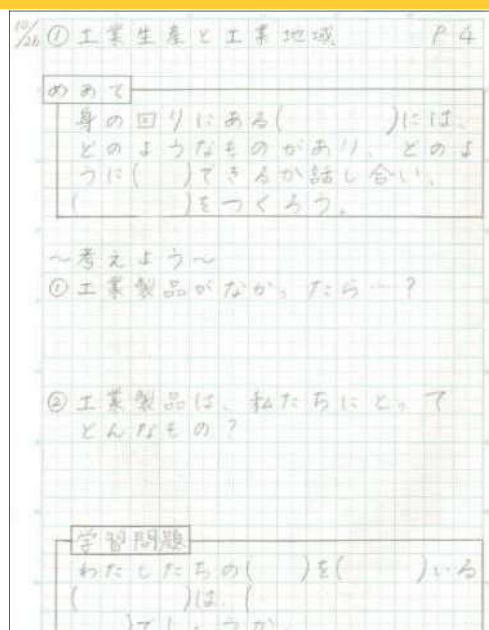 10/26 ① 工業生産と工業地域 P4
めあて
身の回りにある(　　　　)には、
どのようなものがあり、どのよ
うに(　　)できるか話し合い、
(　　　　)をつくろう。
~考えよう~
① 工業製品がなかったら…?
② 工業製品は、私たちにとって
どんなもの?
学習問題
わたしたちの(　　)を(　　　)いる
(　　　　)は、(
)でしょうか。